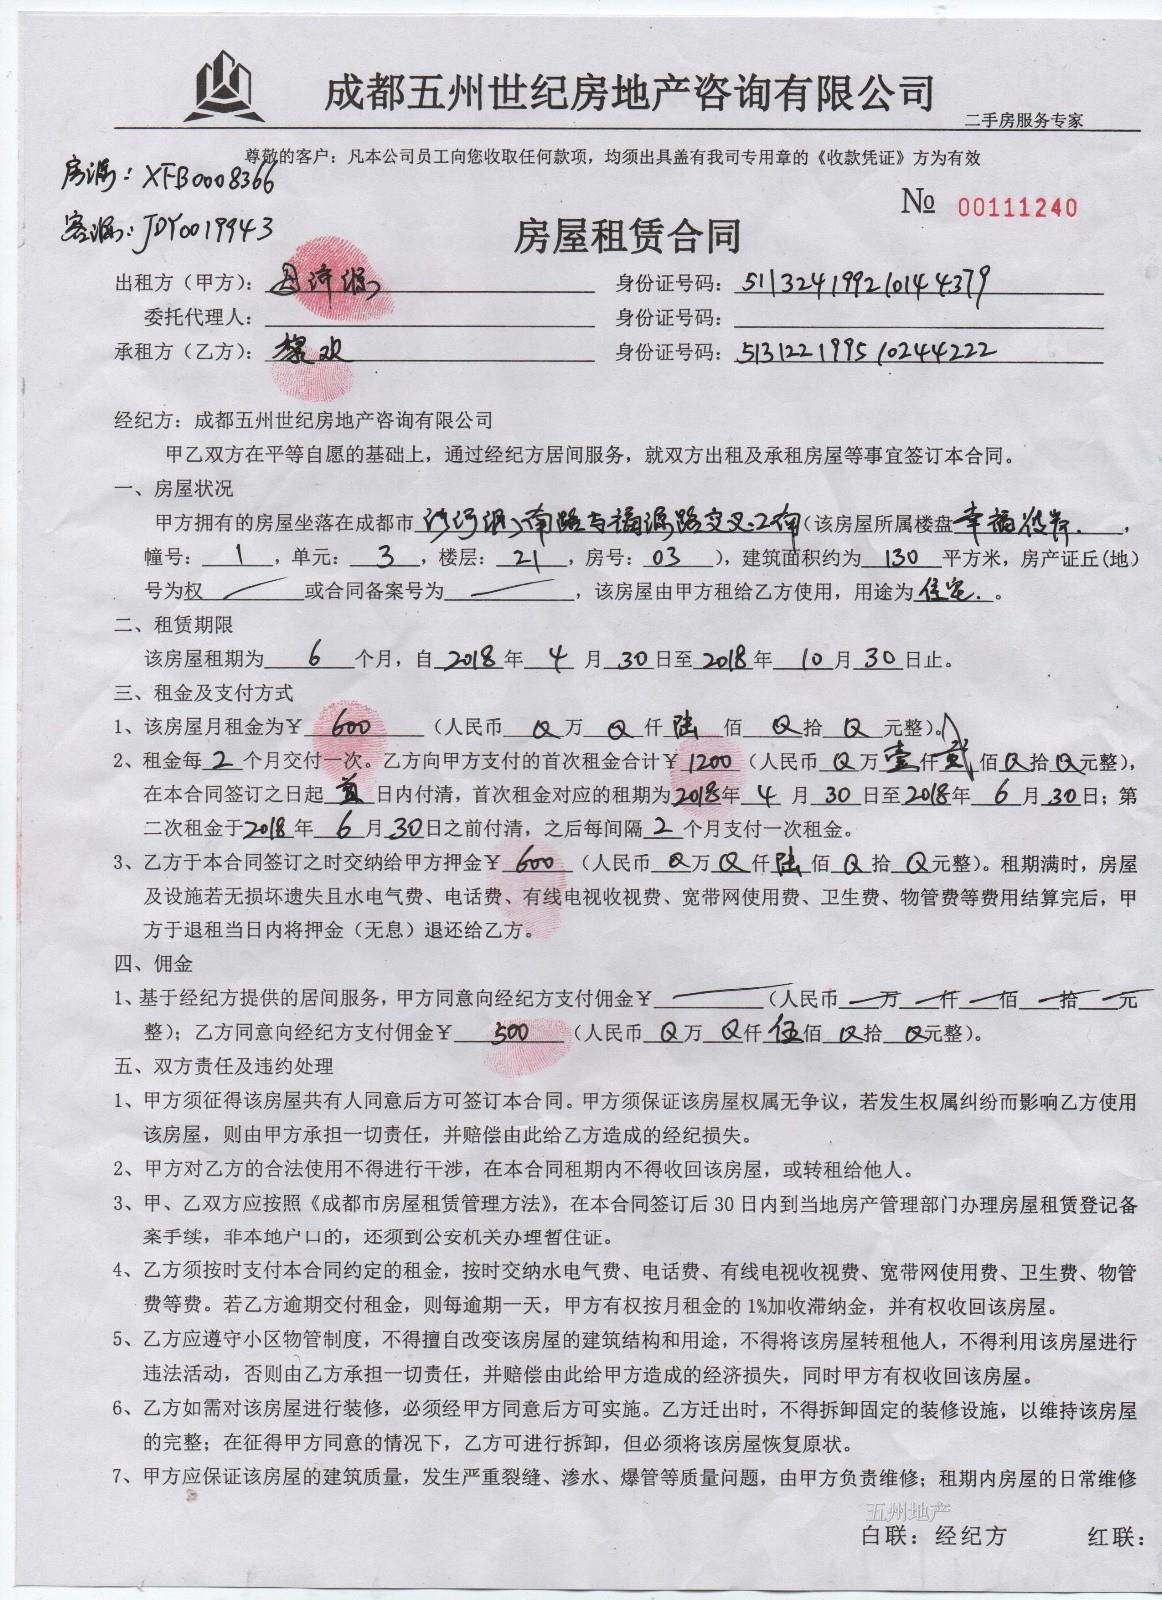 成都五州世纪房地产咨询有限公司
二手房服务专家
尊敬的客户：凡本公司员工向您收取任何款项，均须出具盖有我司专用章的《收款凭证》方为有效
房源：XFB0008366
№ 00111240
客源：JDY0019943
房屋租赁合同
出租方（甲方）： 身份证号码：511324199210144379
委托代理人： 身份证号码：
承租方（乙方）： 欢 身份证号码：513122199510244222
经纪方：成都五州世纪房地产咨询有限公司
甲乙双方在平等自愿的基础上，通过经纪方居间服务，就双方出租及承租房屋等事宜签订本合同。
一、房屋状况
甲方拥有的房屋坐落在成都市 沙河源南路与福源路交叉口南（该房屋所属楼盘 幸福彼岸，
幢号：1，单元：3，楼层：21，房号：03），建筑面积约为 130 平方米，房产证丘(地)
号为权 或合同备案号为 ，该房屋由甲方租给乙方使用，用途为 住宅。
二、租赁期限
该房屋租期为 6 个月，自 2018 年 4 月 30 日至 2018 年 10 月 30 日止。
三、租金及支付方式
1、该房屋月租金为￥ 600 （人民币 万 仟 陆 佰 拾 元整）。
2、租金每 2 个月交付一次。乙方向甲方支付的首次租金合计￥ 1200 （人民币 万 壹 仟 贰 佰 拾 元整），
在本合同签订之日起 日内付清，首次租金对应的租期为 2018 年 4 月 30 日至 2018 年 6 月 30 日；第
二次租金于 2018 年 6 月 30 日之前付清，之后每间隔 2 个月支付一次租金。
3、乙方于本合同签订之时交纳给甲方押金￥ 600 （人民币 万 仟 陆 佰 拾 元整）。租期满时，房屋
及设施若无损坏遗失且水电气费、电话费、有线电视收视费、宽带网使用费、卫生费、物管费等费用结算完后，甲
方于退租当日内将押金（无息）退还给乙方。
四、佣金
1、基于经纪方提供的居间服务，甲方同意向经纪方支付佣金￥ （人民币 万 仟 佰 拾 元
整）；乙方同意向经纪方支付佣金￥ 500 （人民币 万 仟 伍 佰 拾 元整）。
五、双方责任及违约处理
1、甲方须征得该房屋共有人同意后方可签订本合同。甲方须保证该房屋权属无争议，若发生权属纠纷而影响乙方使用
该房屋，则由甲方承担一切责任，并赔偿由此给乙方造成的经纪损失。
2、甲方对乙方的合法使用不得进行干涉，在本合同租期内不得收回该房屋，或转租给他人。
3、甲、乙双方应按照《成都市房屋租赁管理方法》，在本合同签订后 30 日内到当地房产管理部门办理房屋租赁登记备
案手续，非本地户口的，还须到公安机关办理暂住证。
4、乙方须按时支付本合同约定的租金，按时交纳水电气费、电话费、有线电视收视费、宽带网使用费、卫生费、物管
费等费。若乙方逾期交付租金，则每逾期一天，甲方有权按月租金的 1%加收滞纳金，并有权收回该房屋。
5、乙方应遵守小区物管制度，不得擅自改变该房屋的建筑结构和用途，不得将该房屋转租他人，不得利用该房屋进行
违法活动，否则由乙方承担一切责任，并赔偿由此给甲方造成的经济损失，同时甲方有权收回该房屋。
6、乙方如需对该房屋进行装修，必须经甲方同意后方可实施。乙方迁出时，不得拆卸固定的装修设施，以维持该房屋
的完整；在征得甲方同意的情况下，乙方可进行拆卸，但必须将该房屋恢复原状。
7、甲方应保证该房屋的建筑质量，发生严重裂缝、渗水、爆管等质量问题，由甲方负责维修；租期内房屋的日常维修
五州地产
白联：经纪方 红联：